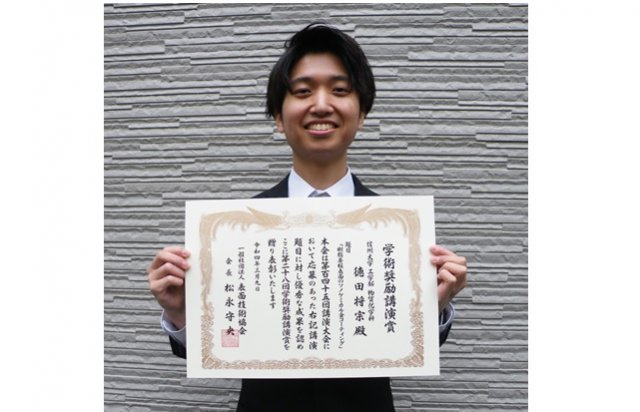 学術奨励講演賞
信州大学 工学部 物質化学科
徳田 将宗 殿
題目
本会は第百四十五回講演大会に
おいて応募のあった右記講演
題目に対し優秀な成果を認め
ここに第二十八回学術奨励講演賞を
贈り表彰いたします
令和四年三月九日
一般社団法人 表面技術協会
会長 松永守央